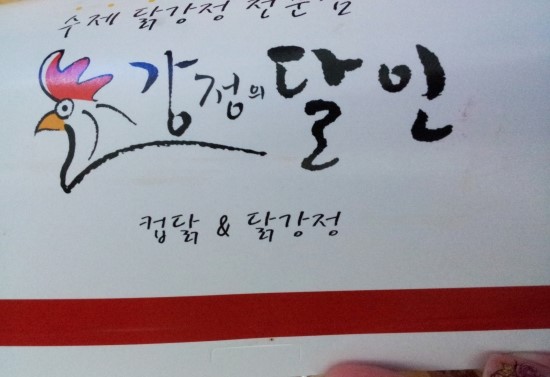 수제 닭강정 전문점
강정의 달인
컵닭 & 닭강정